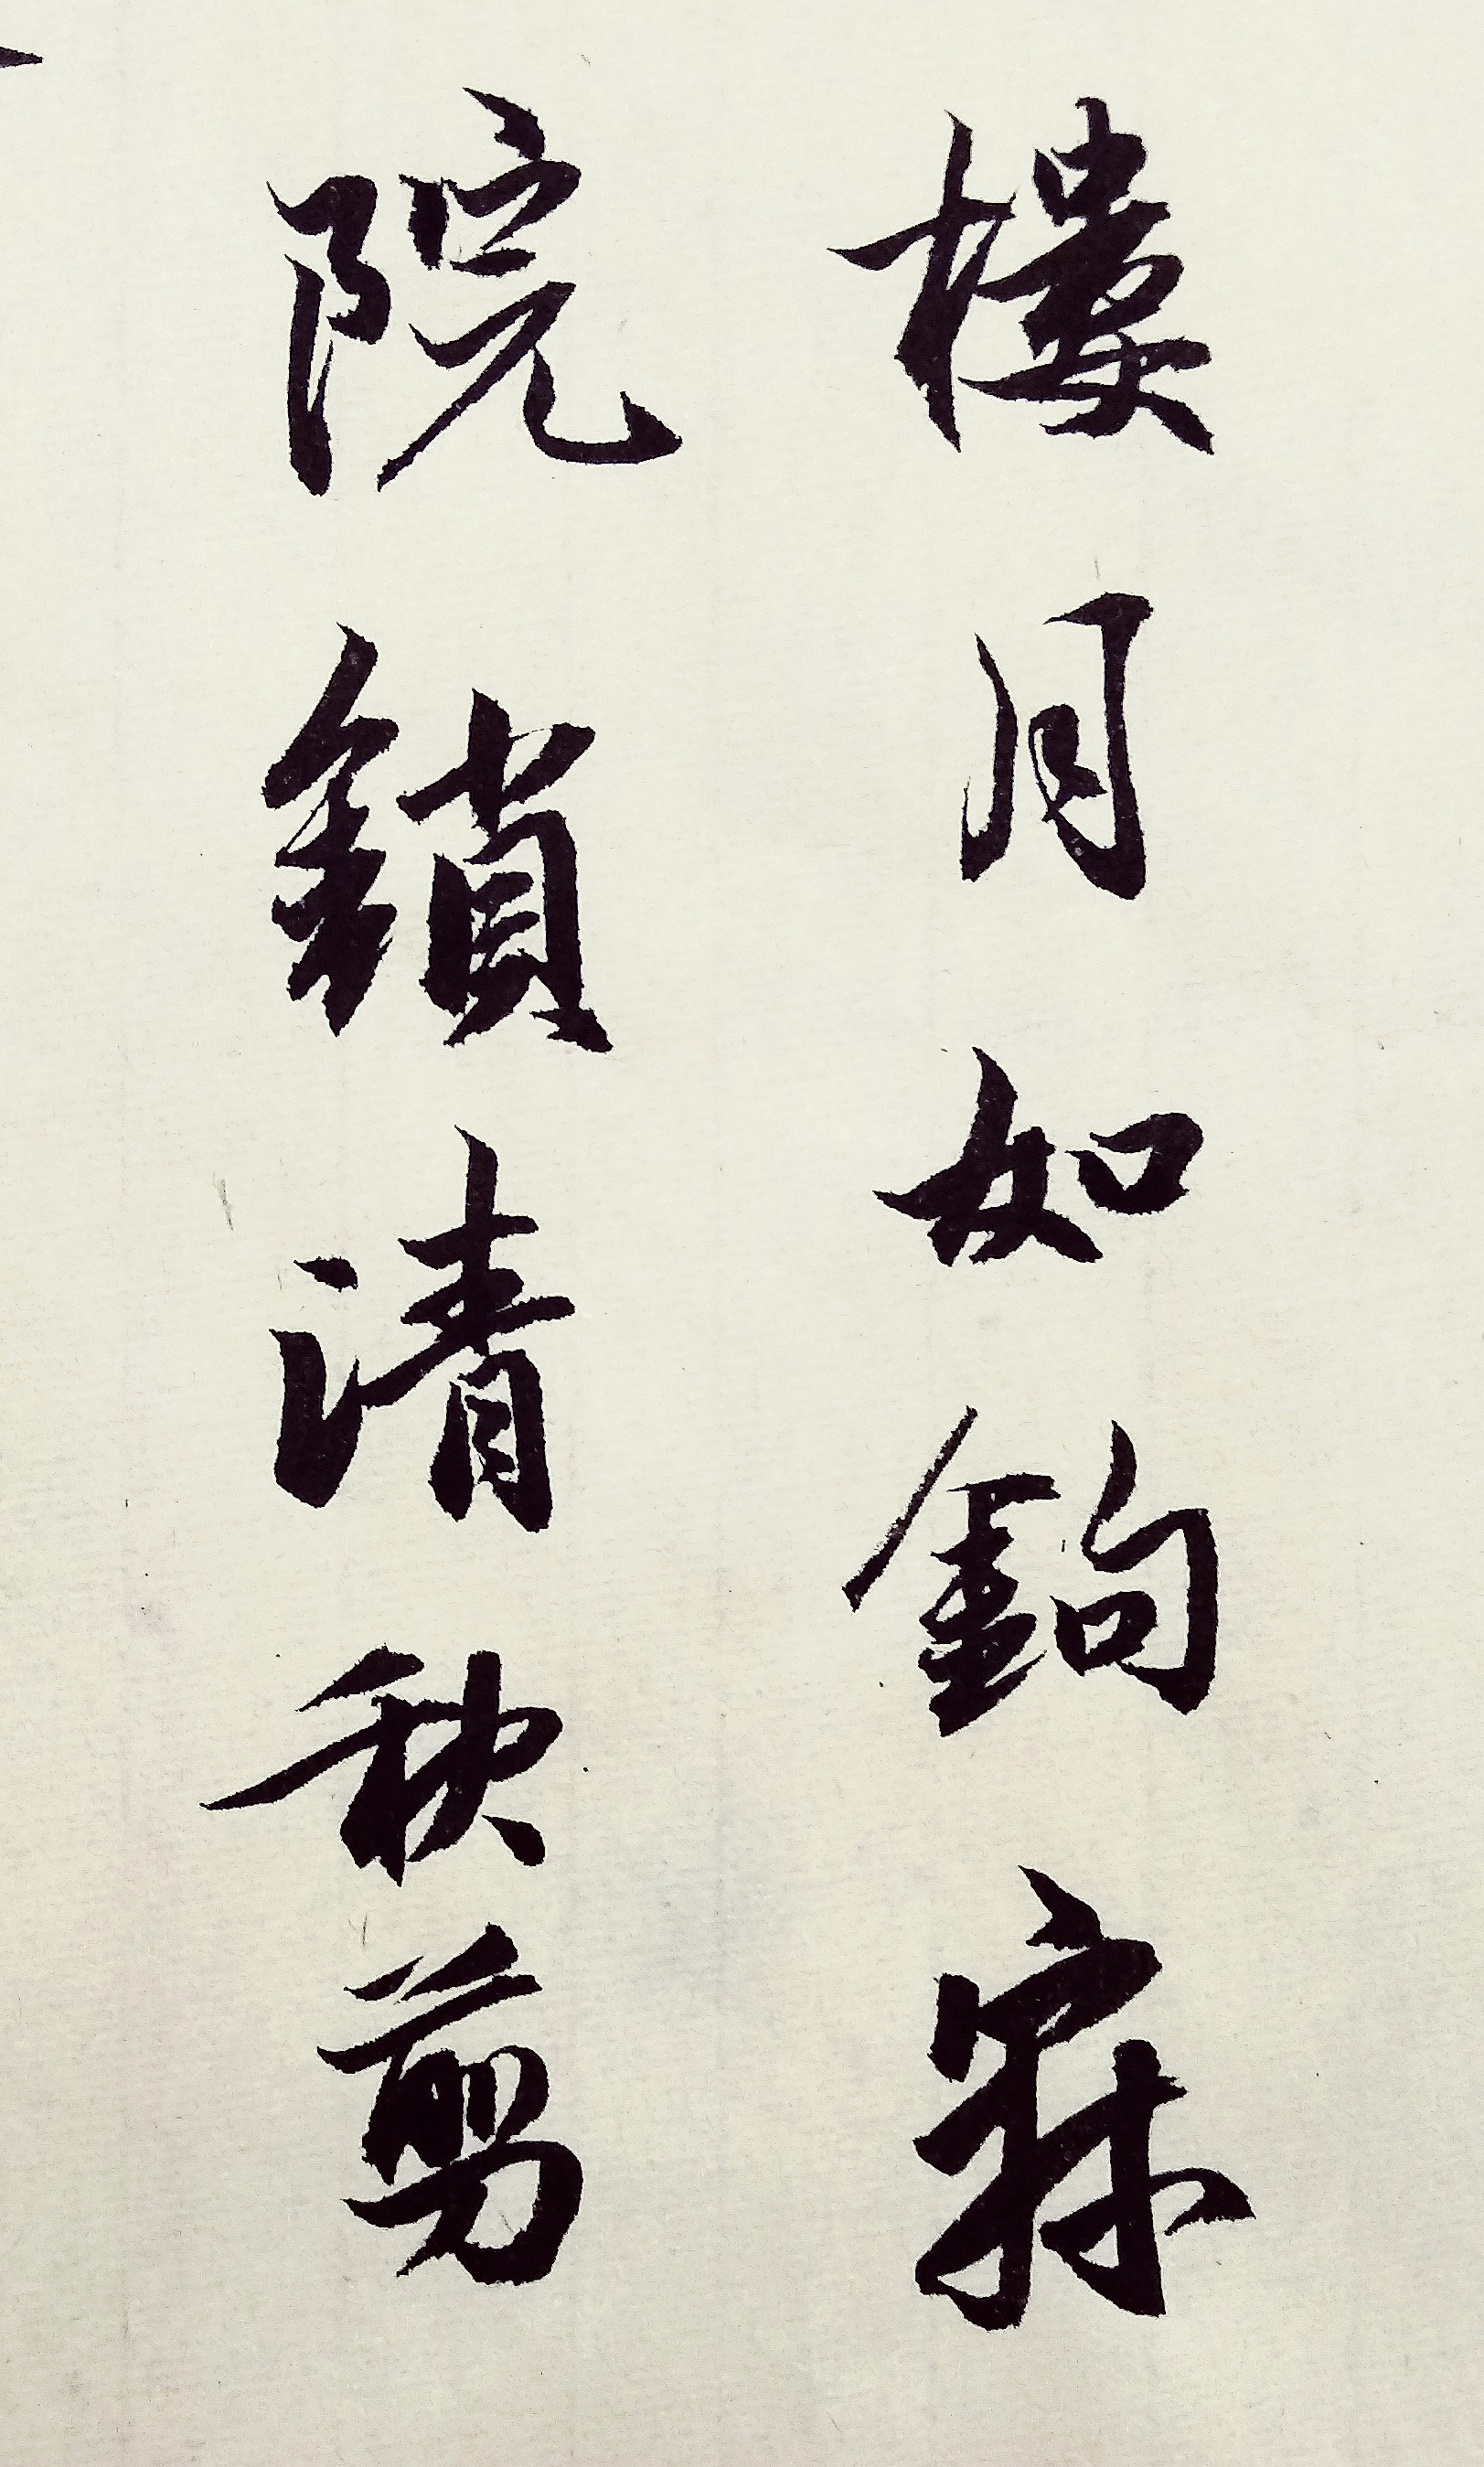 樓月如鉤寂
院鎖清秋剪